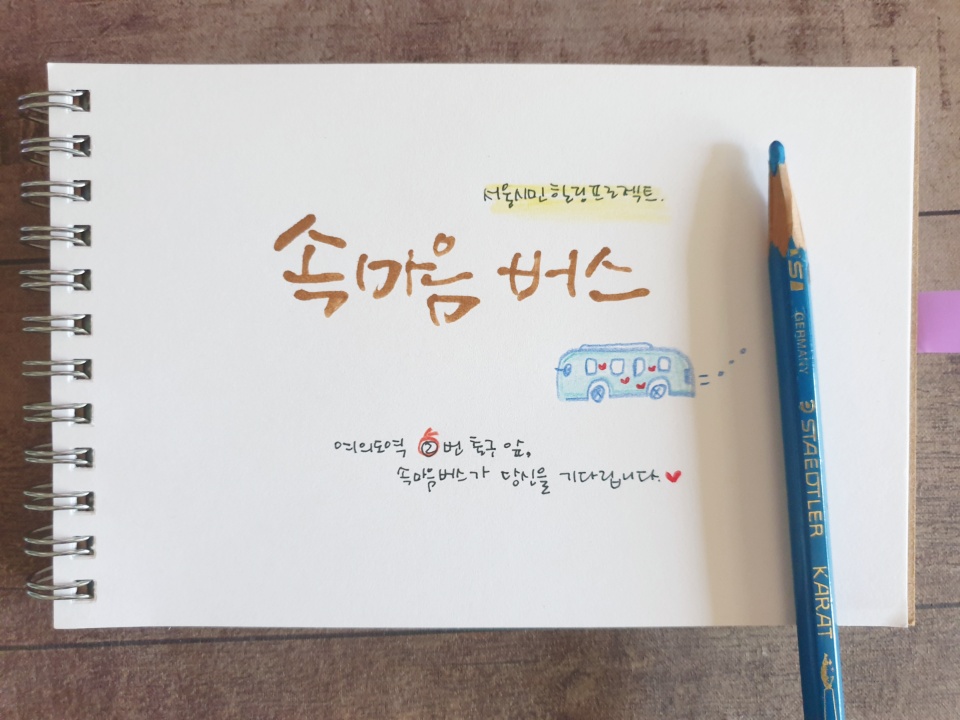 서울시민힐링프로젝트.
속마음 버스
여의도역 2번 출구 앞,
속마음버스가 당신을 기다립니다.
GERMANY
STAEDTLER KARAT